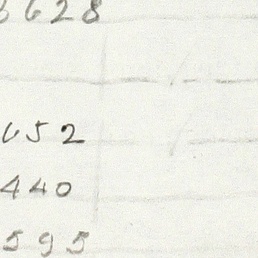 6628
652
440
595